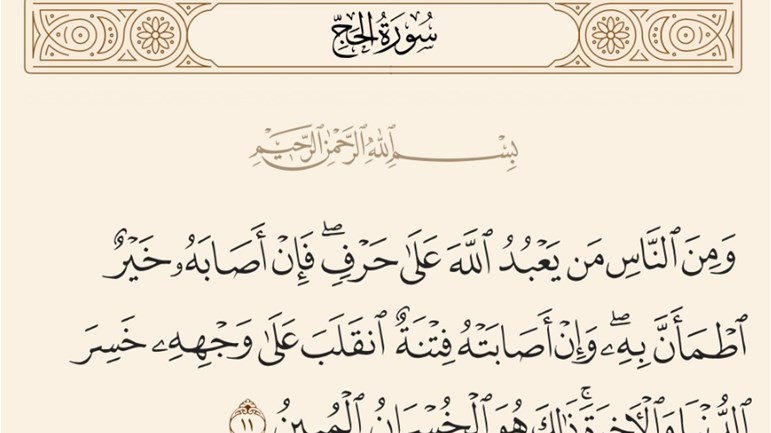 سُورَةُ الحَجِّ
بِسْمِ ٱللَّهِ ٱلرَّحْمَٰنِ ٱلرَّحِيمِ
وَمِنَ ٱلنَّاسِ مَن يَعْبُدُ ٱللَّهَ عَلَىٰ حَرْفٖۖ فَإِنْ أَصَابَهُۥ خَيْرٌ
ٱطْمَأَنَّ بِهِۦۖ وَإِنْ أَصَابَتْهُ فِتْنَةٌ ٱنقَلَبَ عَلَىٰ وَجْهِهِۦ خَسِرَ
ٱلدُّنْيَا وَٱلْأٓخِرَةَۚ ذَٰلِكَ هُوَ ٱلْخُسْرَانُ ٱلْمُبِينُ ١١